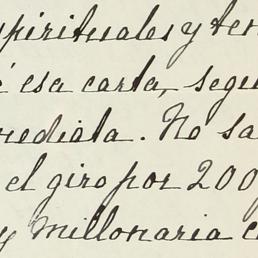 spirituales y ten
é esa carta, segu
mediata. No sa
el giro por 200
y millonaria c